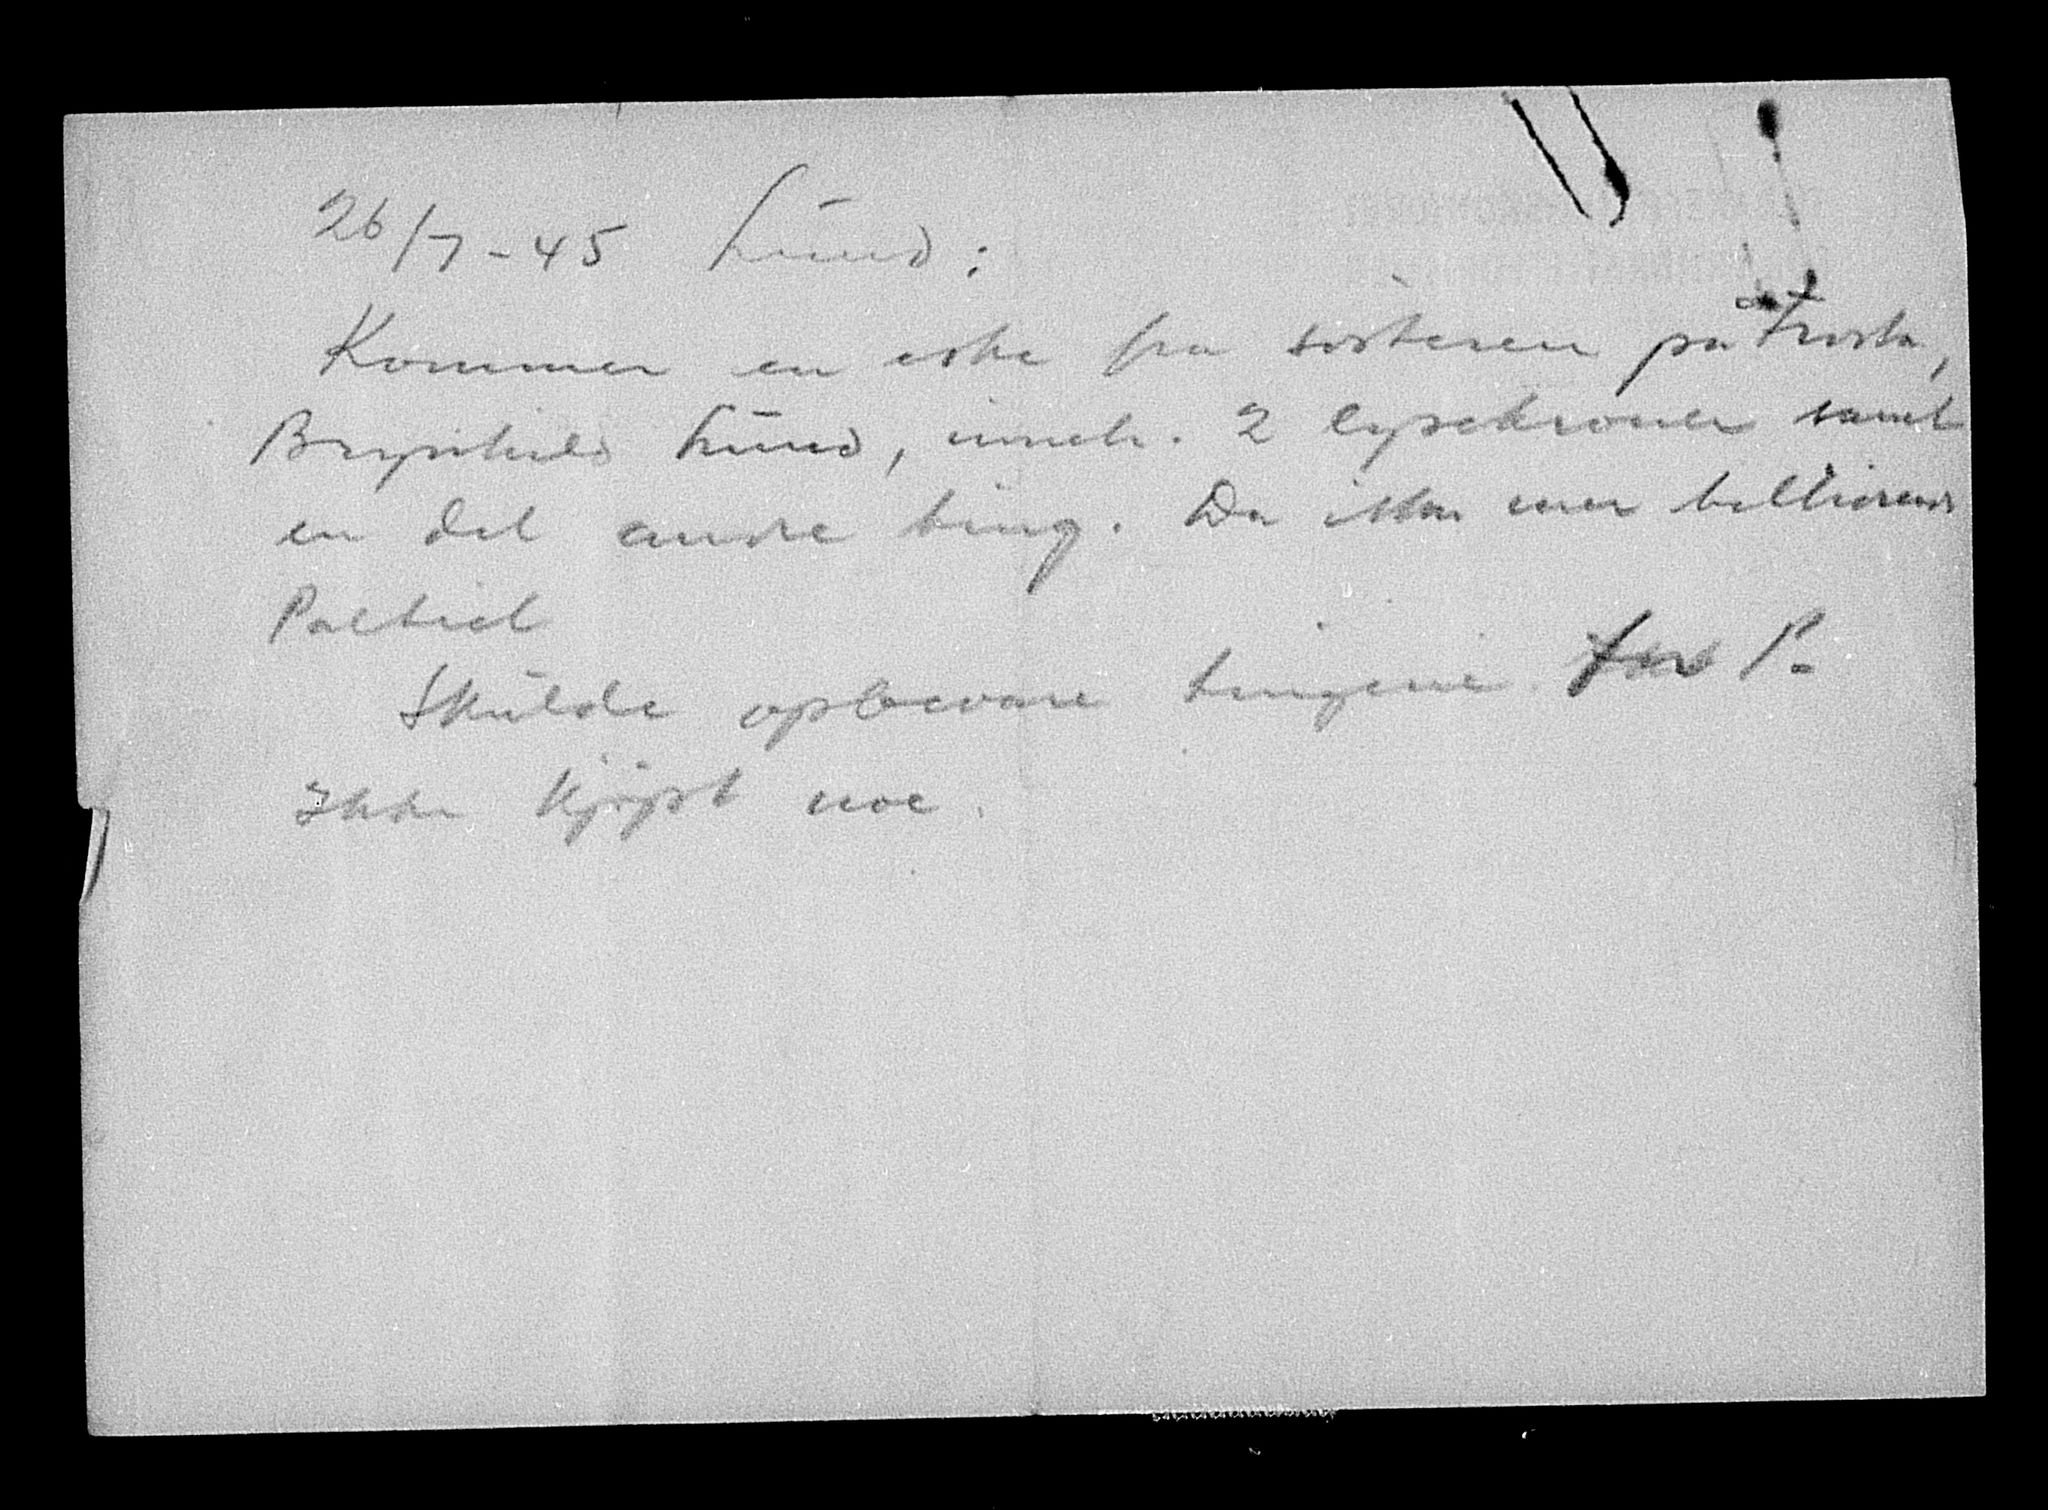 26/7-45 Lund:
Kommer en eske fra søsteren på Frosta,
Brynhild Lund, inneh. 2 lysekroner samt
en del andre ting. Da ikke mer tilhørende
Paltiel
Skulde opbevare tingene for P.
Ikke kjøpt noe.